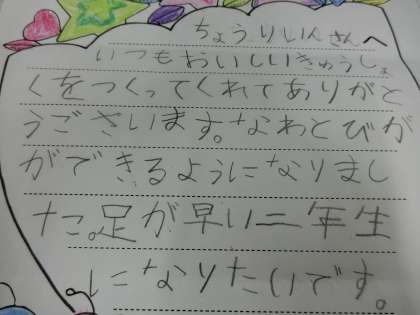 ちょうりいんさんへ
いつもおいしいきゅうしょ
くをつくってくれてありがと
うございます。なわとびが
ができるようになりまし
た。足が早い二年生
になりたいです。